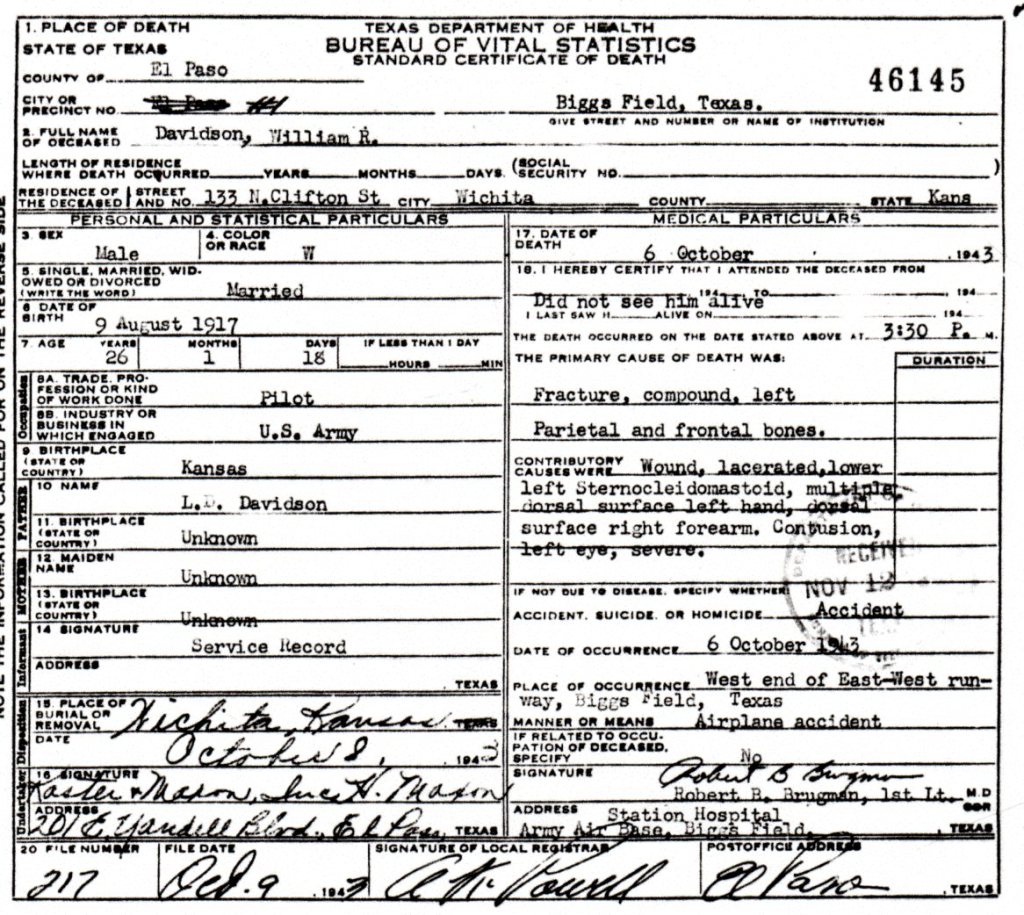 1. PLACE OF DEATH
STATE OF TEXAS
TEXAS DEPARTMENT OF HEALTH
BUREAU OF VITAL STATISTICS
STANDARD CERTIFICATE OF DEATH
COUNTY OF El Paso
46145
CITY OR PRECINCT NO. El Paso #1 Biggs Field, Texas.
GIVE STREET AND NUMBER OR NAME OF INSTITUTION
2. FULL NAME OF DECEASED Davidson, William R.
LENGTH OF RESIDENCE WHERE DEATH OCCURRED YEARS MONTHS DAYS. (SOCIAL SECURITY NO. )
RESIDENCE OF THE DECEASED STREET AND NO. 133 N.Clifton St CITY Wichita COUNTY STATE Kans
PERSONAL AND STATISTICAL PARTICULARS
3. SEX Male
4. COLOR OR RACE W
5. SINGLE, MARRIED, WIDOWED OR DIVORCED (WRITE THE WORD) Married
6 DATE OF BIRTH 9 August 1917
7. AGE YEARS 26 MONTHS 1 DAYS 18 IF LESS THAN 1 DAY HOURS MIN
Occupation
8A. TRADE, PROFESSION OR KIND OF WORK DONE Pilot
8B. INDUSTRY OR BUSINESS IN WHICH ENGAGED U.S. Army
9 BIRTHPLACE (STATE OR COUNTRY) Kansas
FATHER
10 NAME L.D. Davidson
11. BIRTHPLACE (STATE OR COUNTRY) Unknown
MOTHER
12 MAIDEN NAME Unknown
13. BIRTHPLACE (STATE OR COUNTRY) Unknown
Informant
14 SIGNATURE Service Record
ADDRESS , TEXAS
Disposition
15. PLACE OF BURIAL OR REMOVAL Wichita, Kansas TEXAS
DATE October 8, 1943
Undertaker
16 SIGNATURE Kaster & Maxon, Inc H. Maxon
ADDRESS 201 E. Yandell Blvd., El Paso, TEXAS
MEDICAL PARTICULARS
17. DATE OF DEATH 6 October , 1943
18. I HEREBY CERTIFY THAT I ATTENDED THE DECEASED FROM
194 TO , 194
Did not see him alive
I LAST SAW H ALIVE ON , 194
THE DEATH OCCURRED ON THE DATE STATED ABOVE AT 3:30 P. M.
THE PRIMARY CAUSE OF DEATH WAS: DURATION
Fracture, compound, left
Parietal and frontal bones.
CONTRIBUTORY CAUSES WERE Wound, lacerated,lower
left Sternocleidomastoid, multiple
dorsal surface left hand, dorsal
surface right forearm. Contusion,
left eye, severe.
RECEIVED
NOV 12
IF NOT DUE TO DISEASE, SPECIFY WHETHER
ACCIDENT, SUICIDE, OR HOMICIDE Accident
DATE OF OCCURRENCE 6 October 1943
PLACE OF OCCURRENCE West end of East-West run-
way, Biggs Field, Texas
MANNER OR MEANS Airplane accident
IF RELATED TO OCCUPATION OF DECEASED, SPECIFY No
SIGNATURE Robert B Brugman
Robert B. Brugman, 1st Lt. M.D
ADDRESS Station Hospital
Army Air Base, Biggs Field, , TEXAS
20 FILE NUMBER 217
FILE DATE Oct. 9 , 1943
SIGNATURE OF LOCAL REGISTRAR
POSTOFFICE ADDRESS El Paso , TEXAS
NOTE THE INFORMATION CALLED FOR ON THE REVERSE SIDE